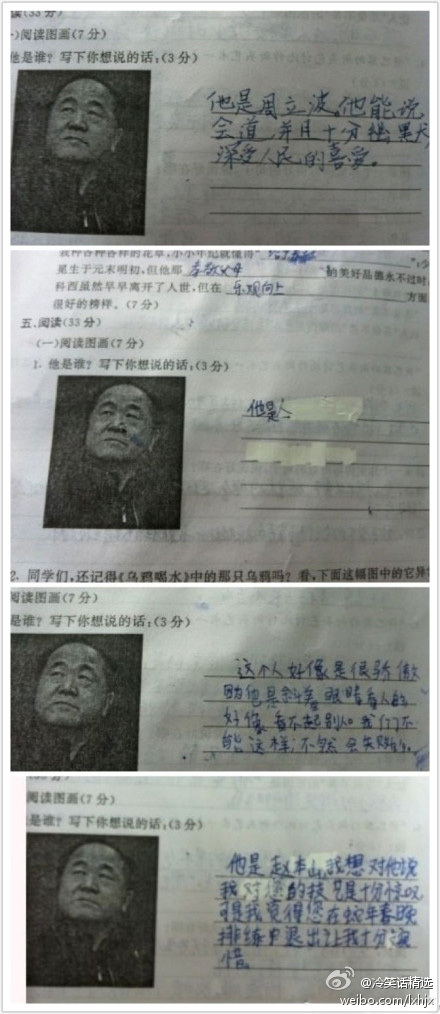 读(33分)
)阅读图画(7分)
他是谁？写下你想说的话:(3分)
他是周立波,他能说
会道,并且十分幽默
深受人民的喜爱。
我种各种各样的花草,小小年纪就懂得
冕生于元末明初,但他那 孝敬父母 的美好品德永不过时
科西虽然早早离开了人世,但在 乐观向上 方面
很好的榜样。(7分)
五、阅读(33分)
(一)阅读图画(7分)
1. 他是谁？写下你想说的话:(3分)
他是人
2. 同学们,还记得《乌鸦喝水》中的那只乌鸦吗？看,下面这幅图中的它异
阅读图画(7分)
是谁？写下你想说的话:(3分)
这个人好像是很骄傲
的他是斜着眼睛看人的
好像看不起别人。我们不
能这样,不然会失败的。
阅读图画(7分)
是谁？写下你想说的话:(3分)
他是赵本山,我想对他说
我对您的技艺是十分惊叹
可是我觉得您在蛇年春晚
排练中退出让我十分惋
惜。
@冷笑话精选
weibo.com/lxhjx